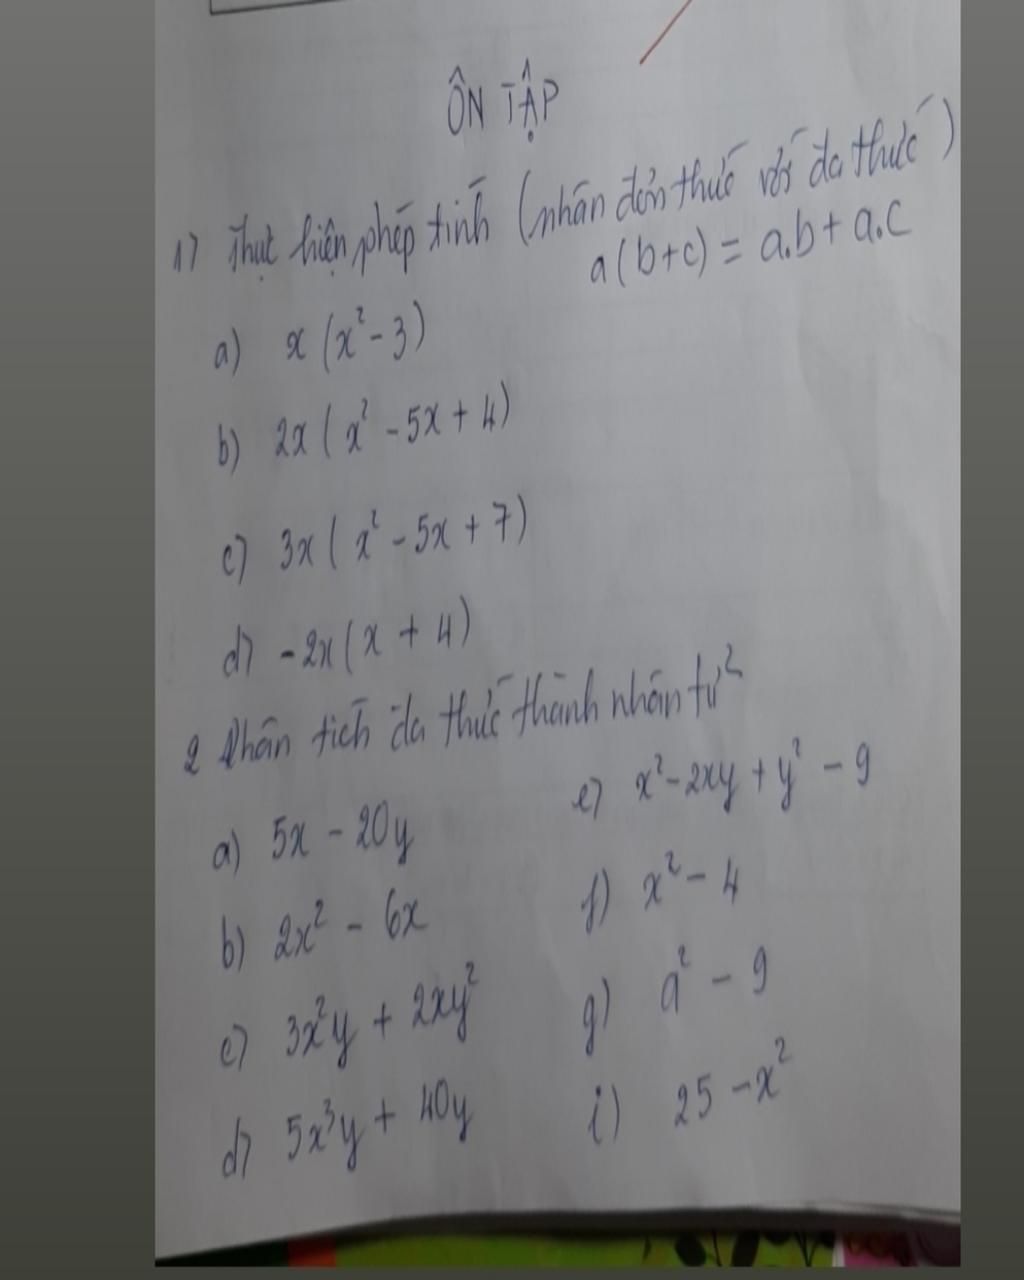 ÔN TẬP
1) Thực hiện phép tính (nhân đơn thức với đa thức)
a(b+c) = a.b + a.c
a) x(x² - 3)
b) 2x(x² - 5x + 4)
c) 3x(x² - 5x + 7)
d) -2x(x + 4)
2 Phân tích đa thức thành nhân tử
a) 5x - 20y
b) 2x² - 6x
c) 3x²y + 2xy²
d) 5x³y + 40y
e) x² - 2xy + y² - 9
f) x² - 4
g) a² - 9
i) 25 - x²